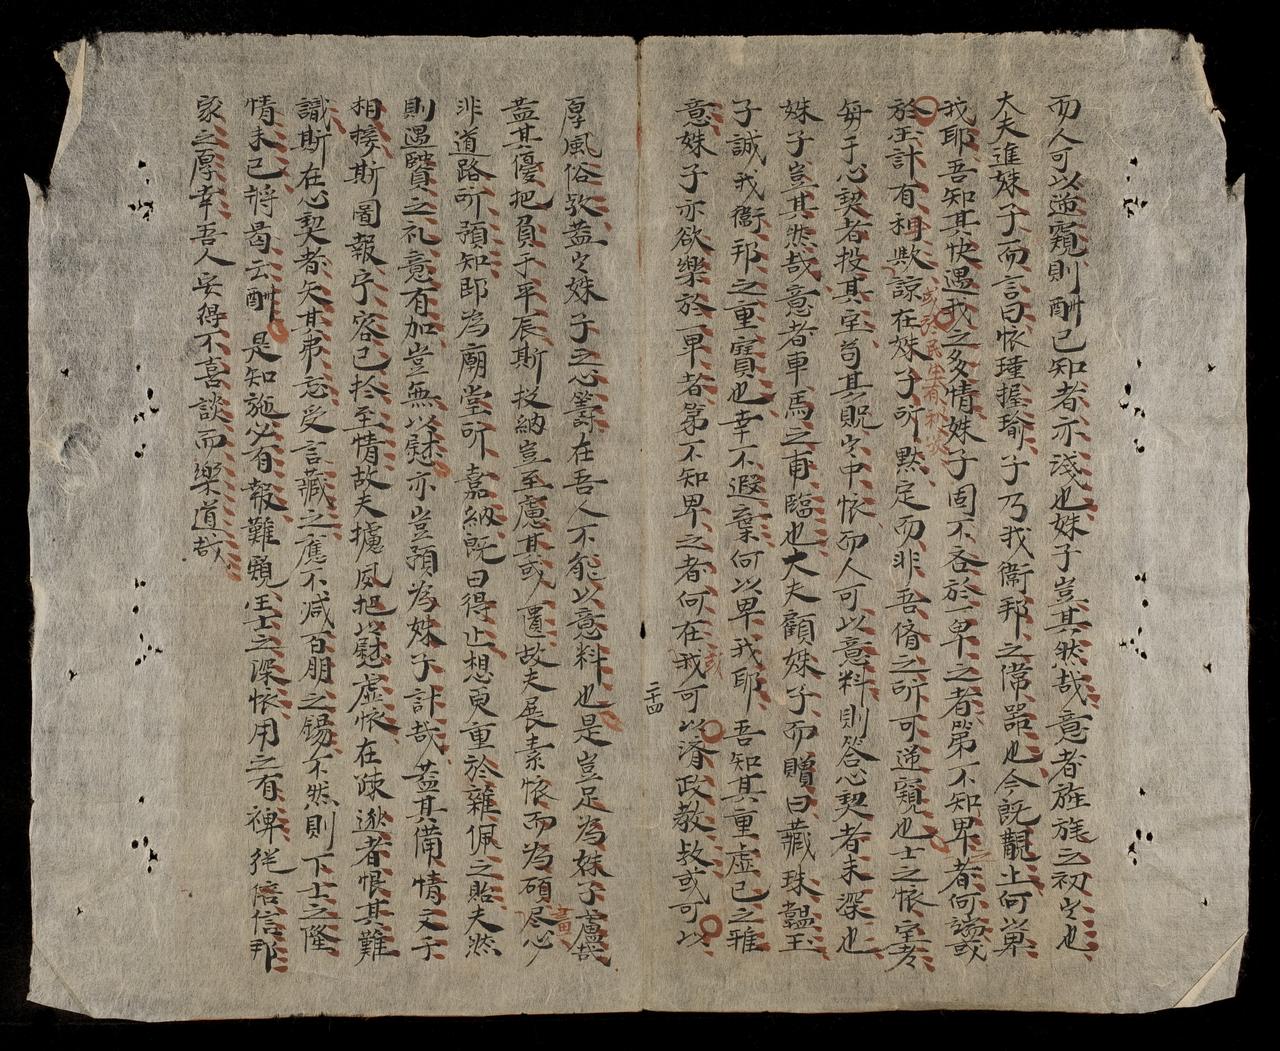 而人可以逆窺則酬已知者亦淺也姝子豈其然哉意者旌旄之初出也
大夫進姝子而言曰懷瑾握瑜子乃我衞邦之常器也今既覿止何以卑
我耶吾知其快遇我之多情姝子固不吝於一卑之者第不知卑者何謠或
於王計有利歟諒在姝子所默定而非吾儕之所可逆窺也士之懷宝者
每手心契者投其室苟其貺出中懷而人可以意料則答心契者未深也
姝子豈其然哉意者車馬之甫臨也大夫顧姝子而贈曰藏珠韞玉
子誠我衞邦之重寶也幸不遐棄何以卑我耶吾知其重虛已之雅
意姝子亦欲樂於一卑者第不知卑之者何在我可以濟政教或可以
二十四
厚風俗歟蓋出姝子之心籌在吾人不能以意料也是豈足為姝子盧哉
蓋其優把負手平辰斯投納豈至慮其或遺故夫展素懷而為碩尽心
非道路所預知即為廟堂所嘉納既曰得止想更重於雜佩之貽夫然
則遇賢之礼意有加豈無以慰亦豈預為姝子計哉蓋其備情文于
相接斯圖報乎容已於至情故夫攄夙把以慰虛懷在疎逖者恨其難
識斯在心契者矢其弗忘受言藏之應不減百朋之錫不然則下士之隆
情未已將曷云酬是知施必有報難窺宝士之深懷用之有裨從啓信邦
家之厚幸吾人安得不喜談而樂道哉